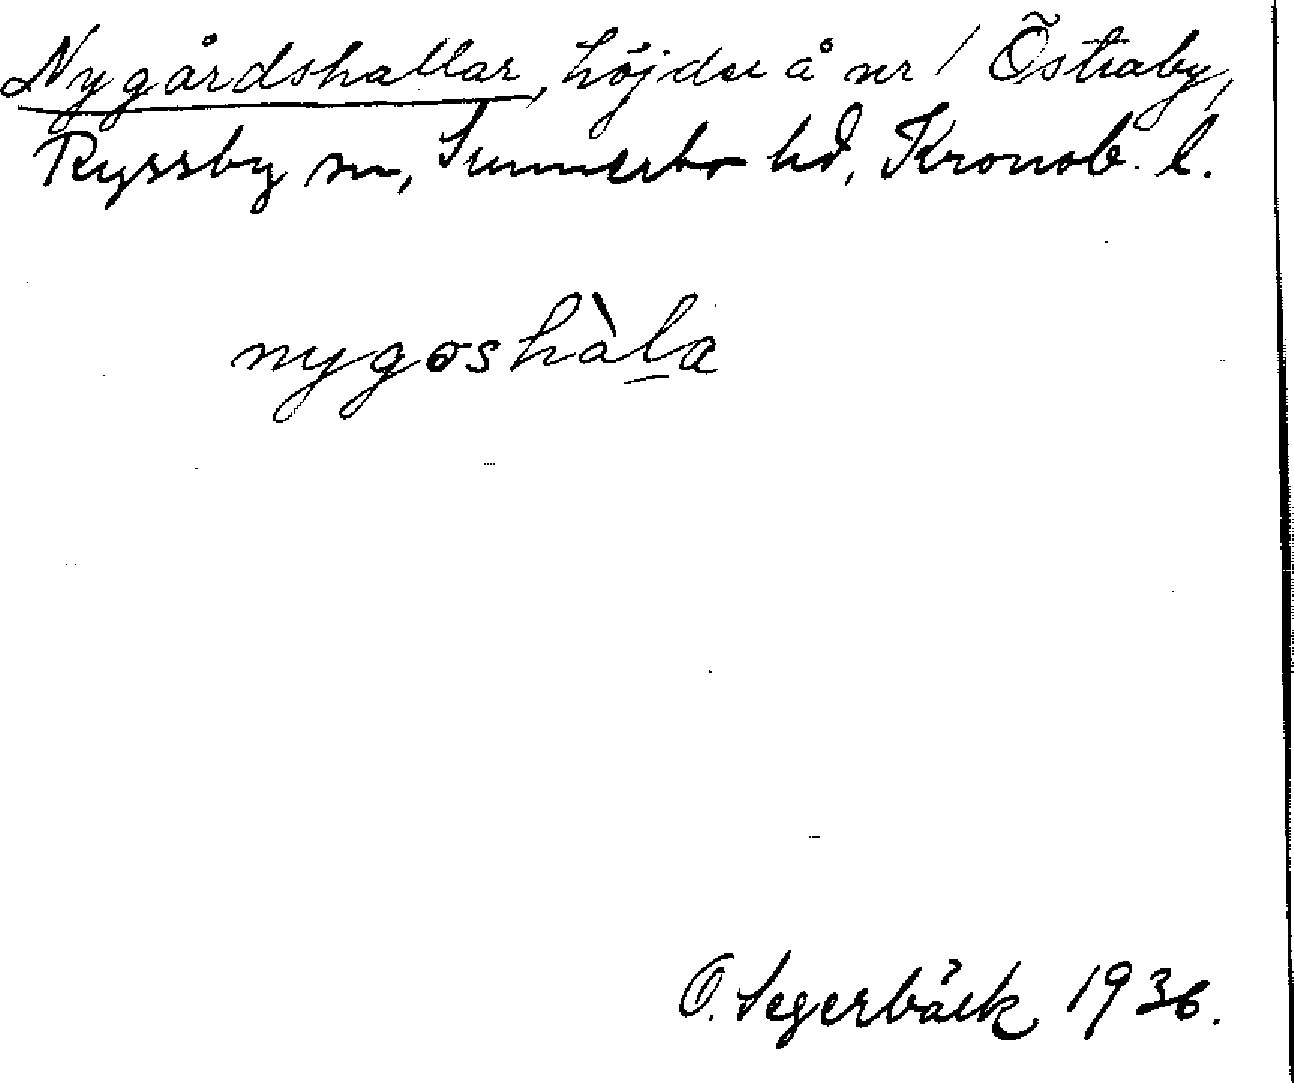 Nygårdshallar, höjder å nr 1 Östraby,
Ryssby sn, Sunnerbo hd, Kronob. l.
nygoshàla
O. Segerbäck 1936.